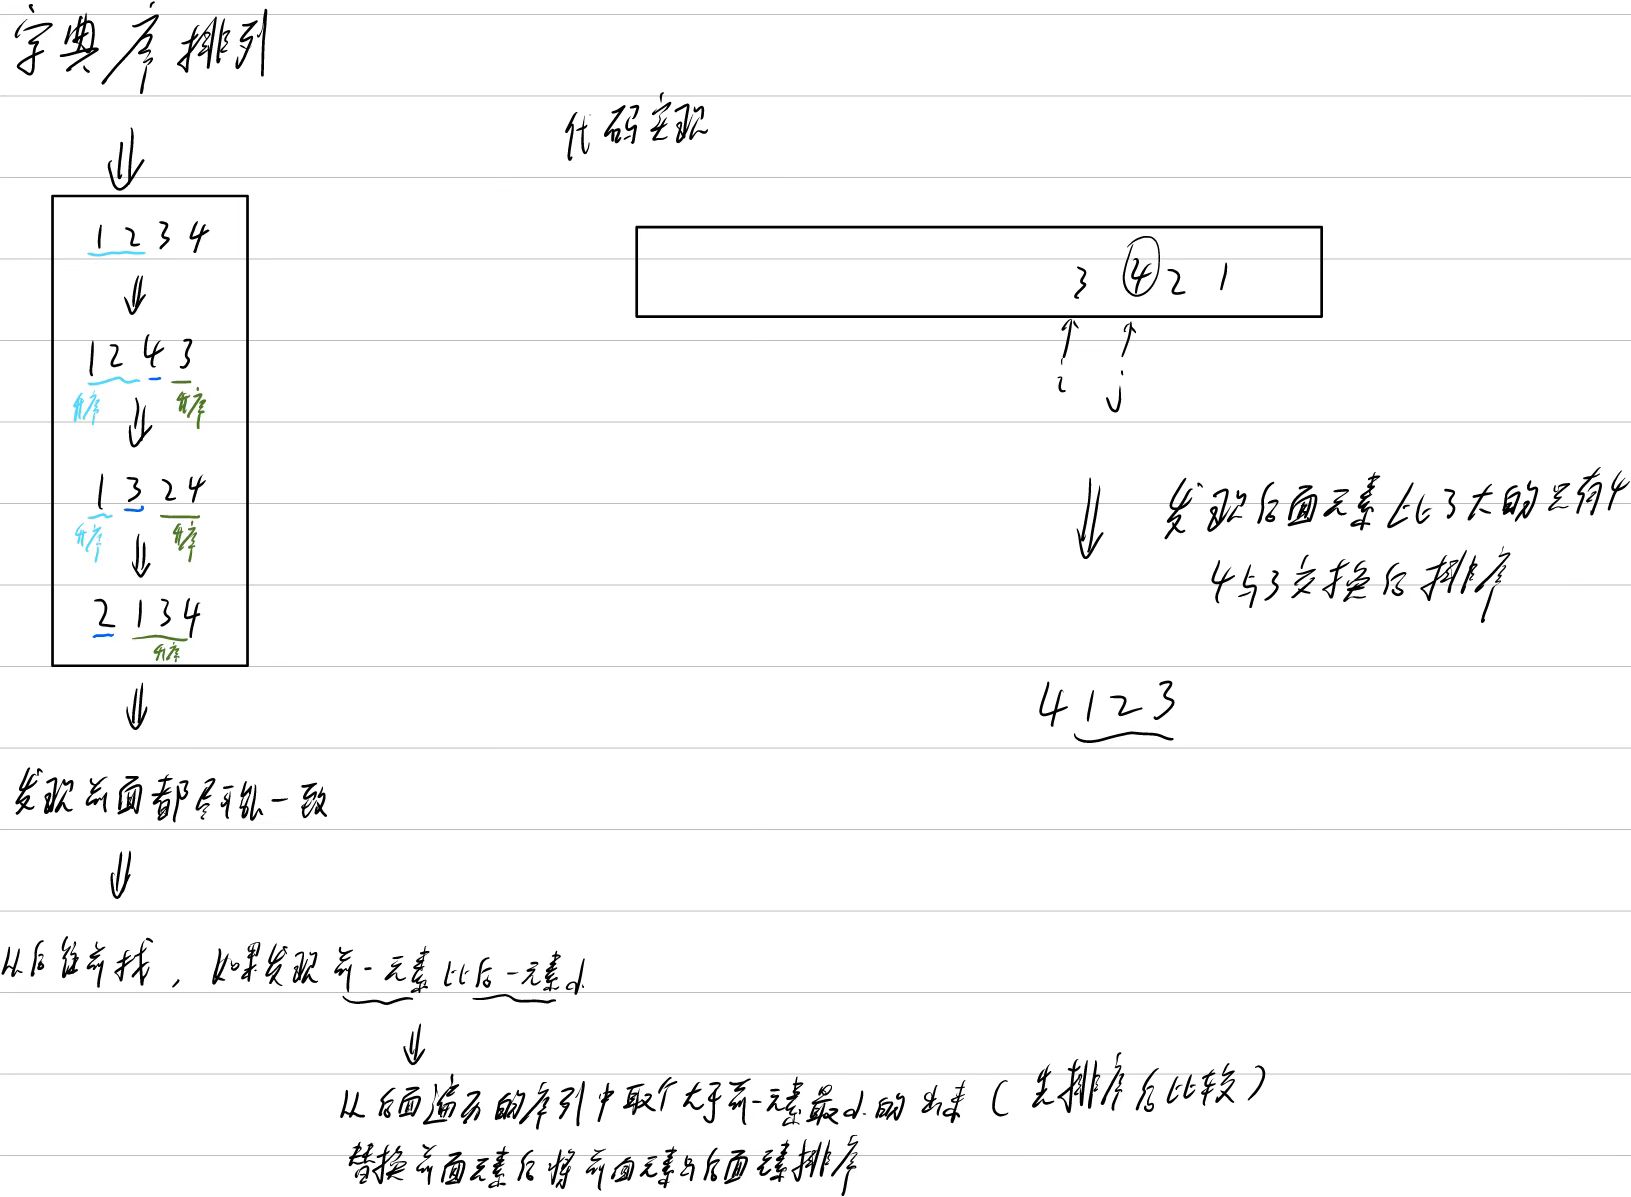 字典序排列
1 2 3 4
1 2 4 3
升序 升序
1 3 2 4
升序 升序
2 1 3 4
升序
发现前面都尽可能一致
从后往前找，如果发现前一元素比后一元素小
从后面遍历的序列中取个大于前一元素最小的出来（先排序后比较）
替换前面元素后将前面元素与后面元素排序
代码实现
3 4 2 1
i j
发现后面元素比3大的只有4
4与3交换后排序
4 1 2 3